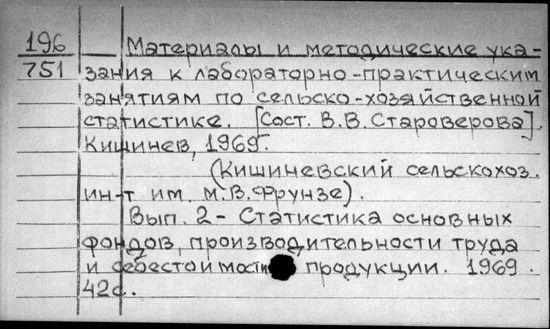 196 Материалы и методические ука-
751 зания к лабораторно-практическим
занятиям по сельско-хозяйственной
статистике. [Сост. В.В. Староверова].
Кишинев, 1969.
(Кишиневский сельскохоз.
ин-т им. М.В. Фрунзе).
Вып. 2 - Статистика основных
фондов, производительности труда
и себестоимости продукции. 1969.
42с.